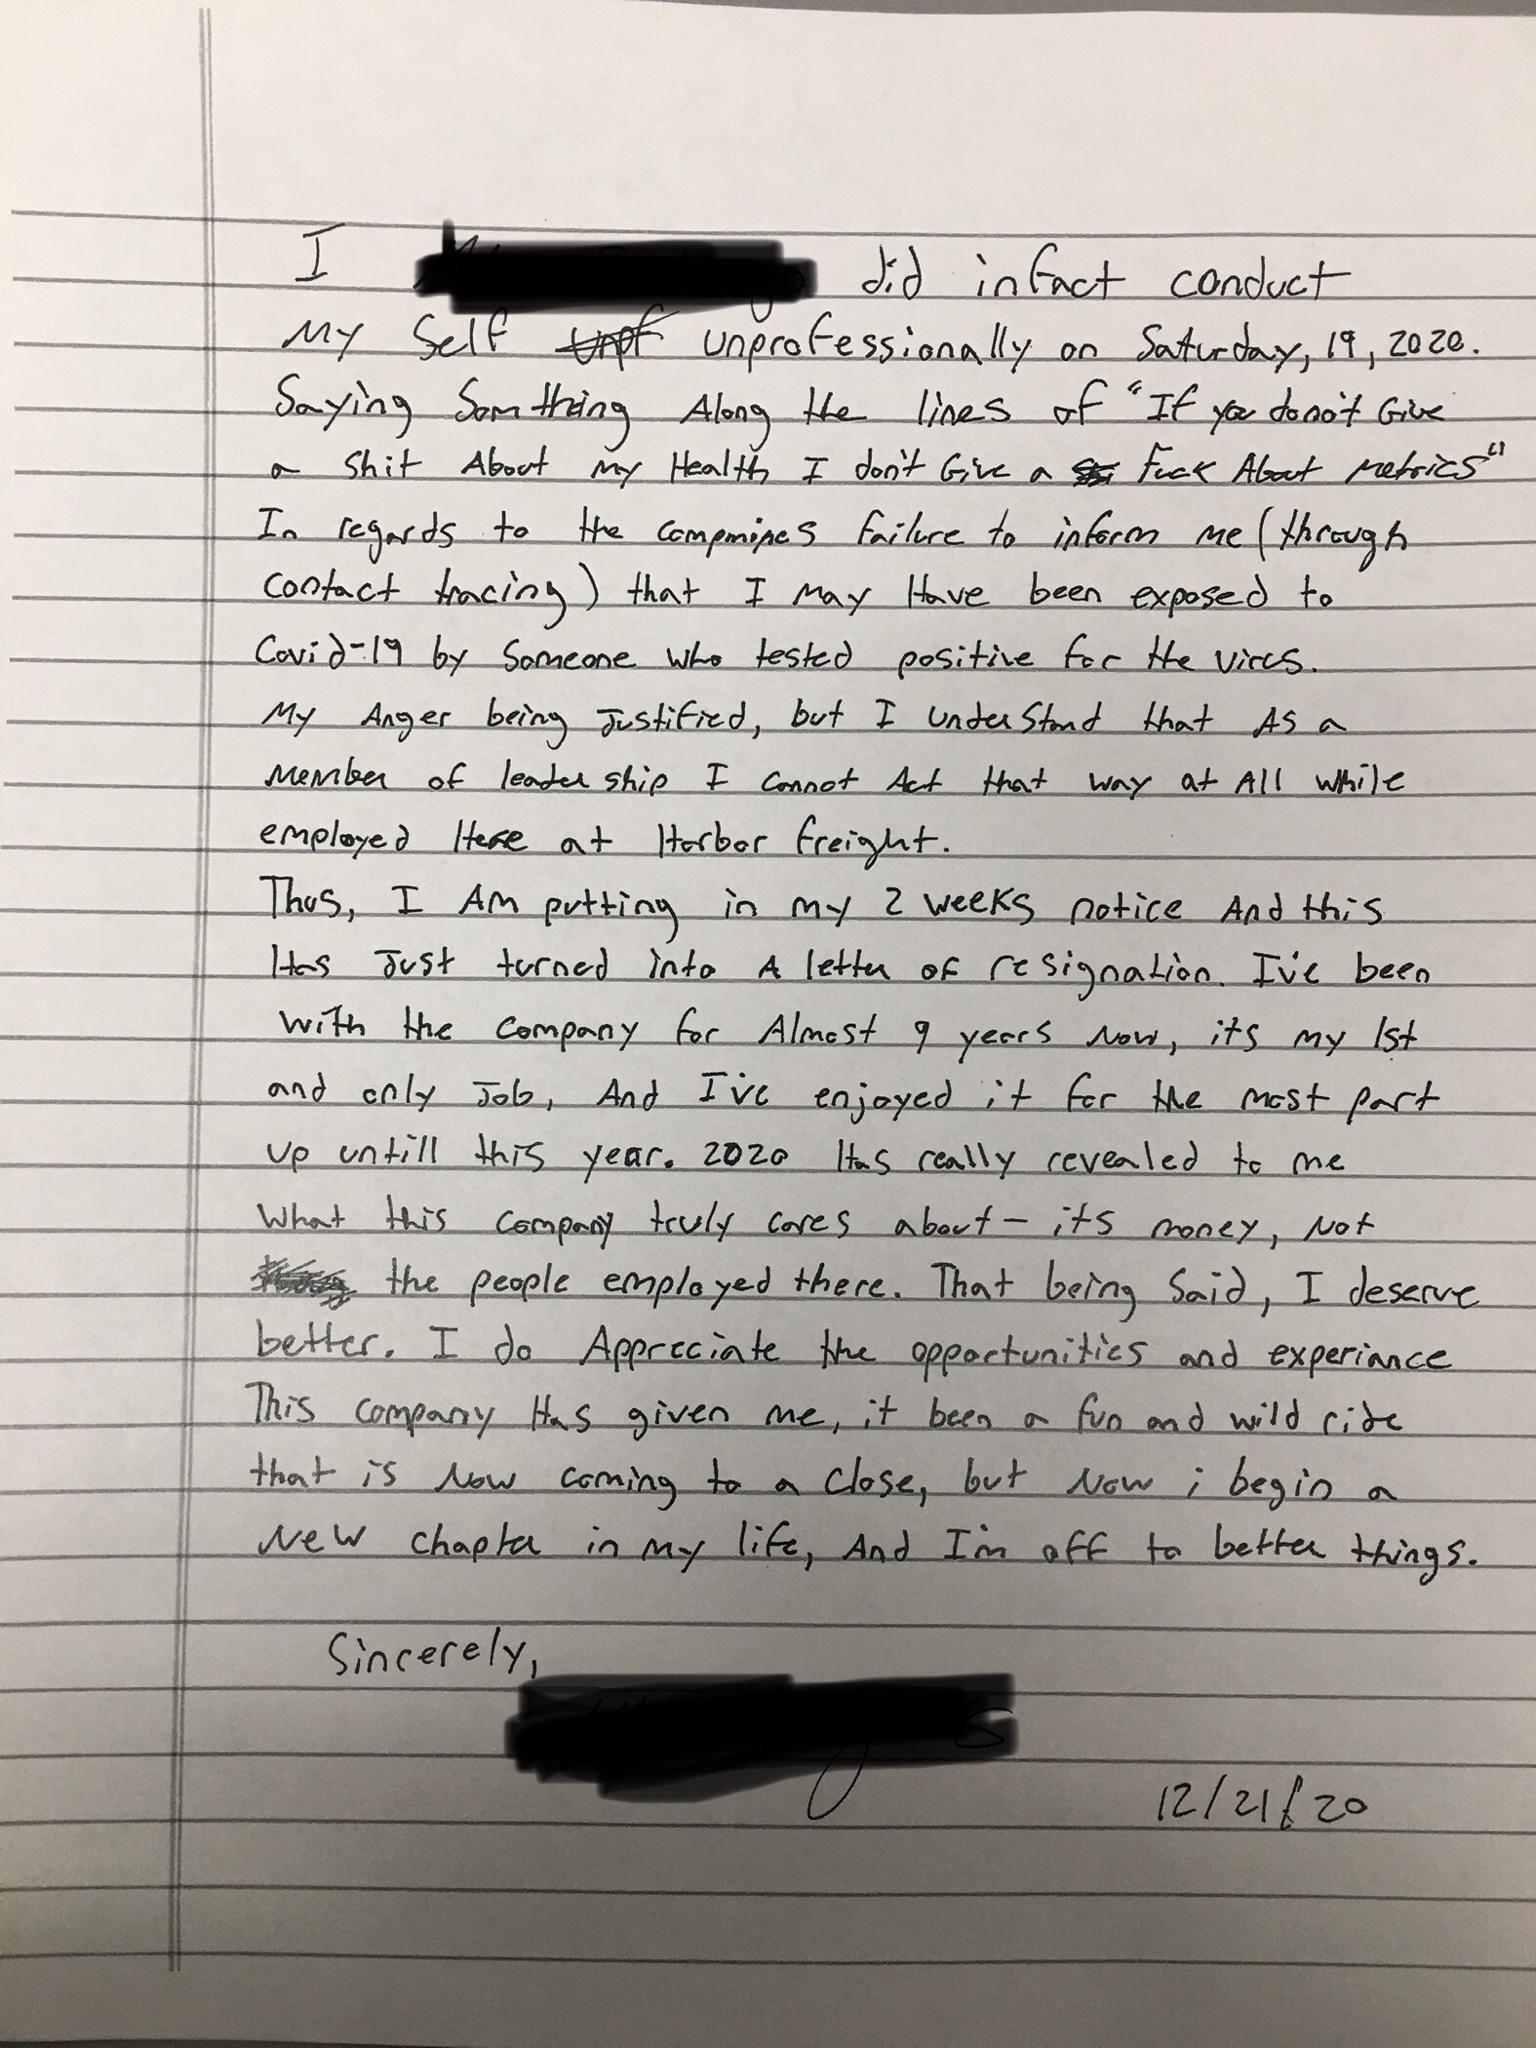 I did infact conduct
My Self unprofessionally on Saturday, 19, 2020.
Saying Somthing Along the lines of "If you donot Give
a shit About my Health I don't Give a Fuck About metrics"
In regards to the failure to inform me (through
contact tracing) that I may Have been exposed to
Covid-19 by Someone who tested positive for the virus.
My Anger being Justified, but I understand that As a
member of leadership I cannot Act that way at All while
employed Here at Harbor freight.
Thus, I Am putting in my 2 weeks notice And this
Has Just turned into A letter of resignation. I've been
with the company for Almost 9 years Now, its my 1st
and only Job, And I've enjoyed it for the most part
up untill this year. 2020 Has really revealed to me
what this company truly cares about - its money, Not
the people employed there. That being Said, I deserve
better. I do Appreciate the opportunities and experiance
This company Has given me, it been a fun and wild ride
that is Now coming to a close, but Now i begin a
New chapter in my life, And I'm off to better things.
Sincerely,
12/21/20